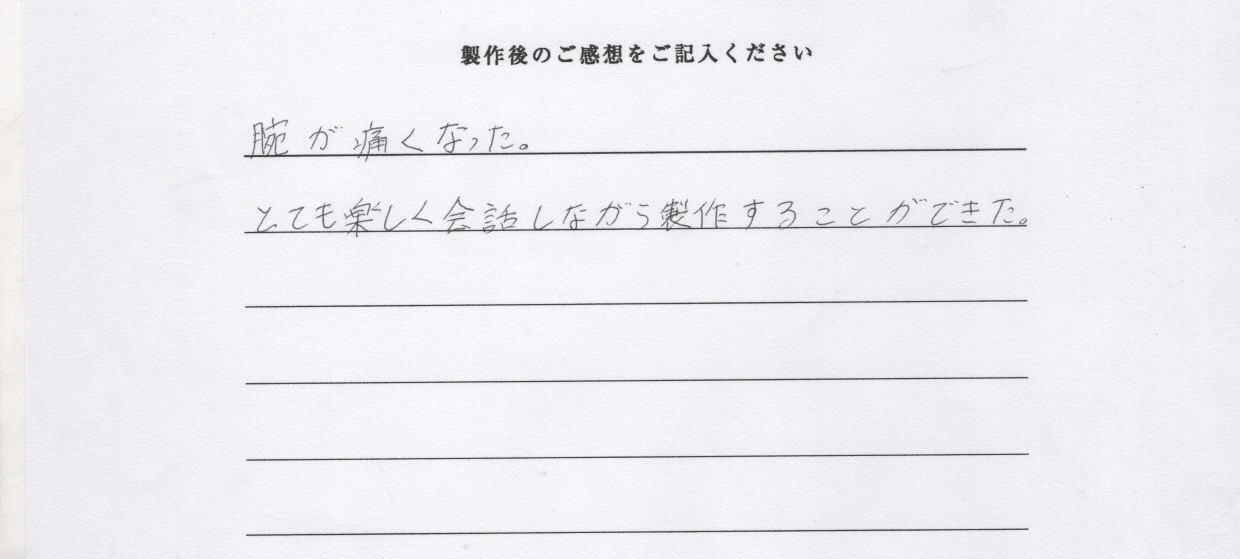 製作後のご感想をご記入ください
腕が痛くなった。
とても楽しく会話しながら製作することができた。